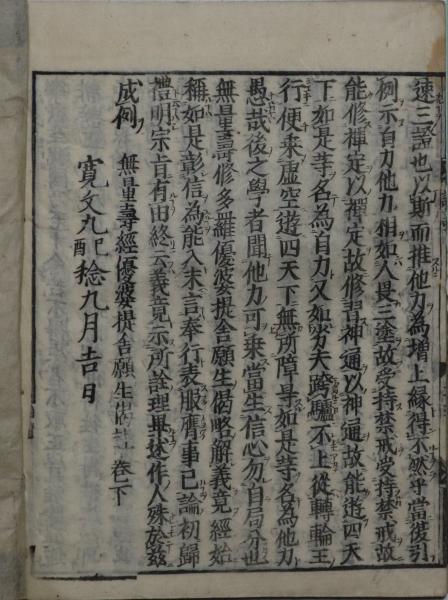 速三證也以斯而推他力為増上縁得不然乎當復引
例示自力他力相如人畏三塗故受持禁戒受持禁戒故
能修禪定以禪定故修習神通以神通故能遊四天
下如是等名為自力又如劣夫跨驢不上從轉輪王
行便乗虚空遊四天下無所障㝵如是等名為他力
愚哉後之學者聞他力可乗當生信心勿自局分也
無量壽修多羅優婆提舎願生偈略解義竟經始
稱如是彰信為能入末言奉行表服膺事已論初歸
禮明宗旨有由終云義竟示所詮理畢述作人殊於茲
成例
無量壽經優婆提舎願生偈註巻下
寛文九己酉稔九月吉日